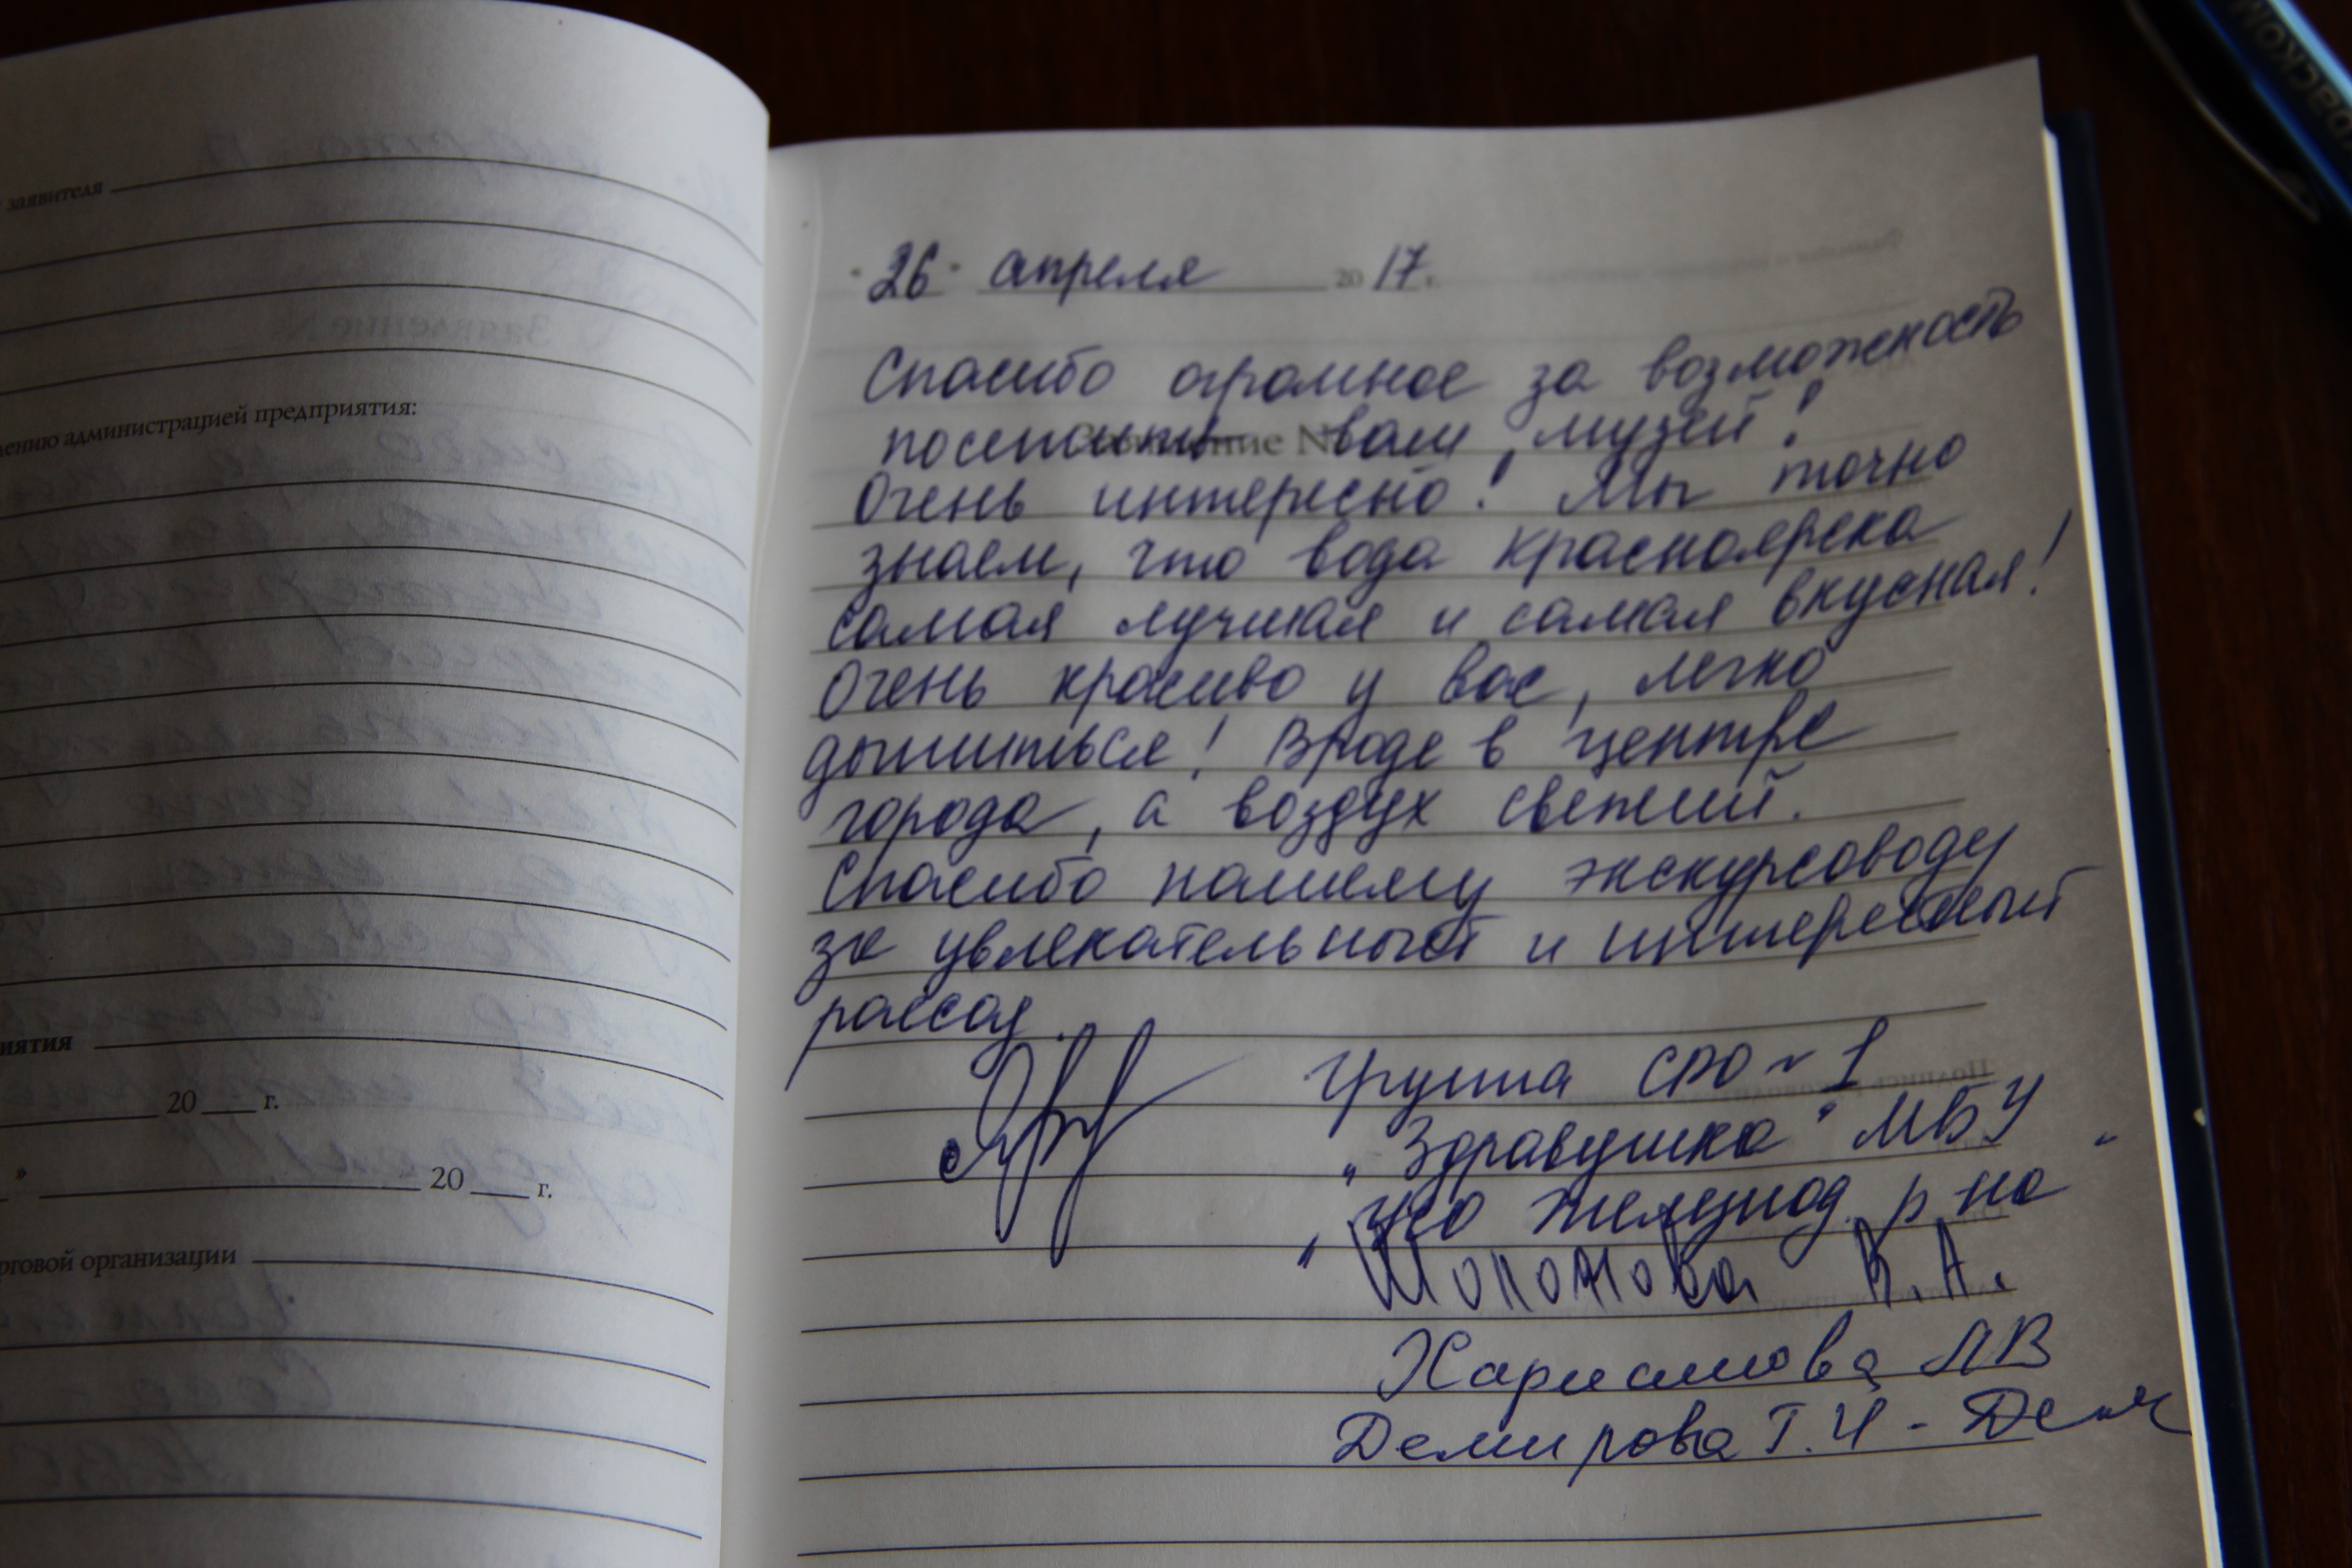 заявителя
лению администрацией предприятия:
иятия
20 г.
» 20 г.
рговой организации
26 апреля 2017 г.
Спасибо огромное за возможность
посетить ваш музей!
Очень интересно! Мы точно
знаем, что вода Красноярска
самая лучшая и самая вкусная!
Очень красиво у вас, легко
дышиться! Вроде в центре
города, а воздух свежий.
Спасибо нашему экскурсоводу
за увлекательный и интересный
рассаз.
Группа СРО № 1
"Здравушка" МБУ
" Железнод. р-на"
К.А.
ЛВ
Демирова Т.Ч - Дем